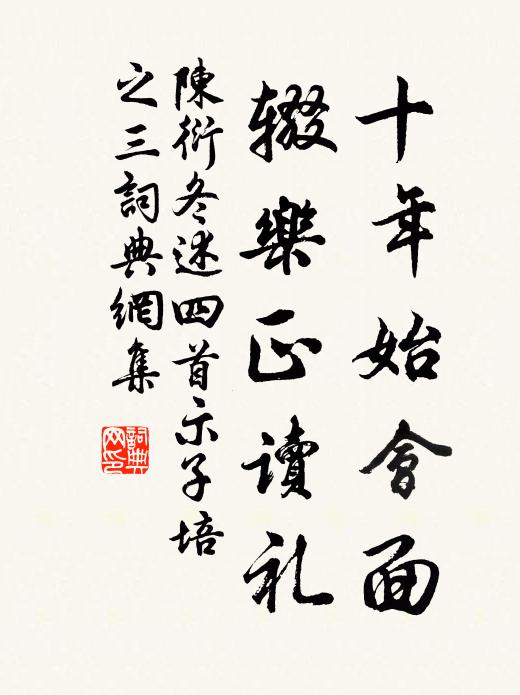 十年始會面
辍樂正讀礼
陳衍冬述四首示子培
之三詞典網集
詞典网印